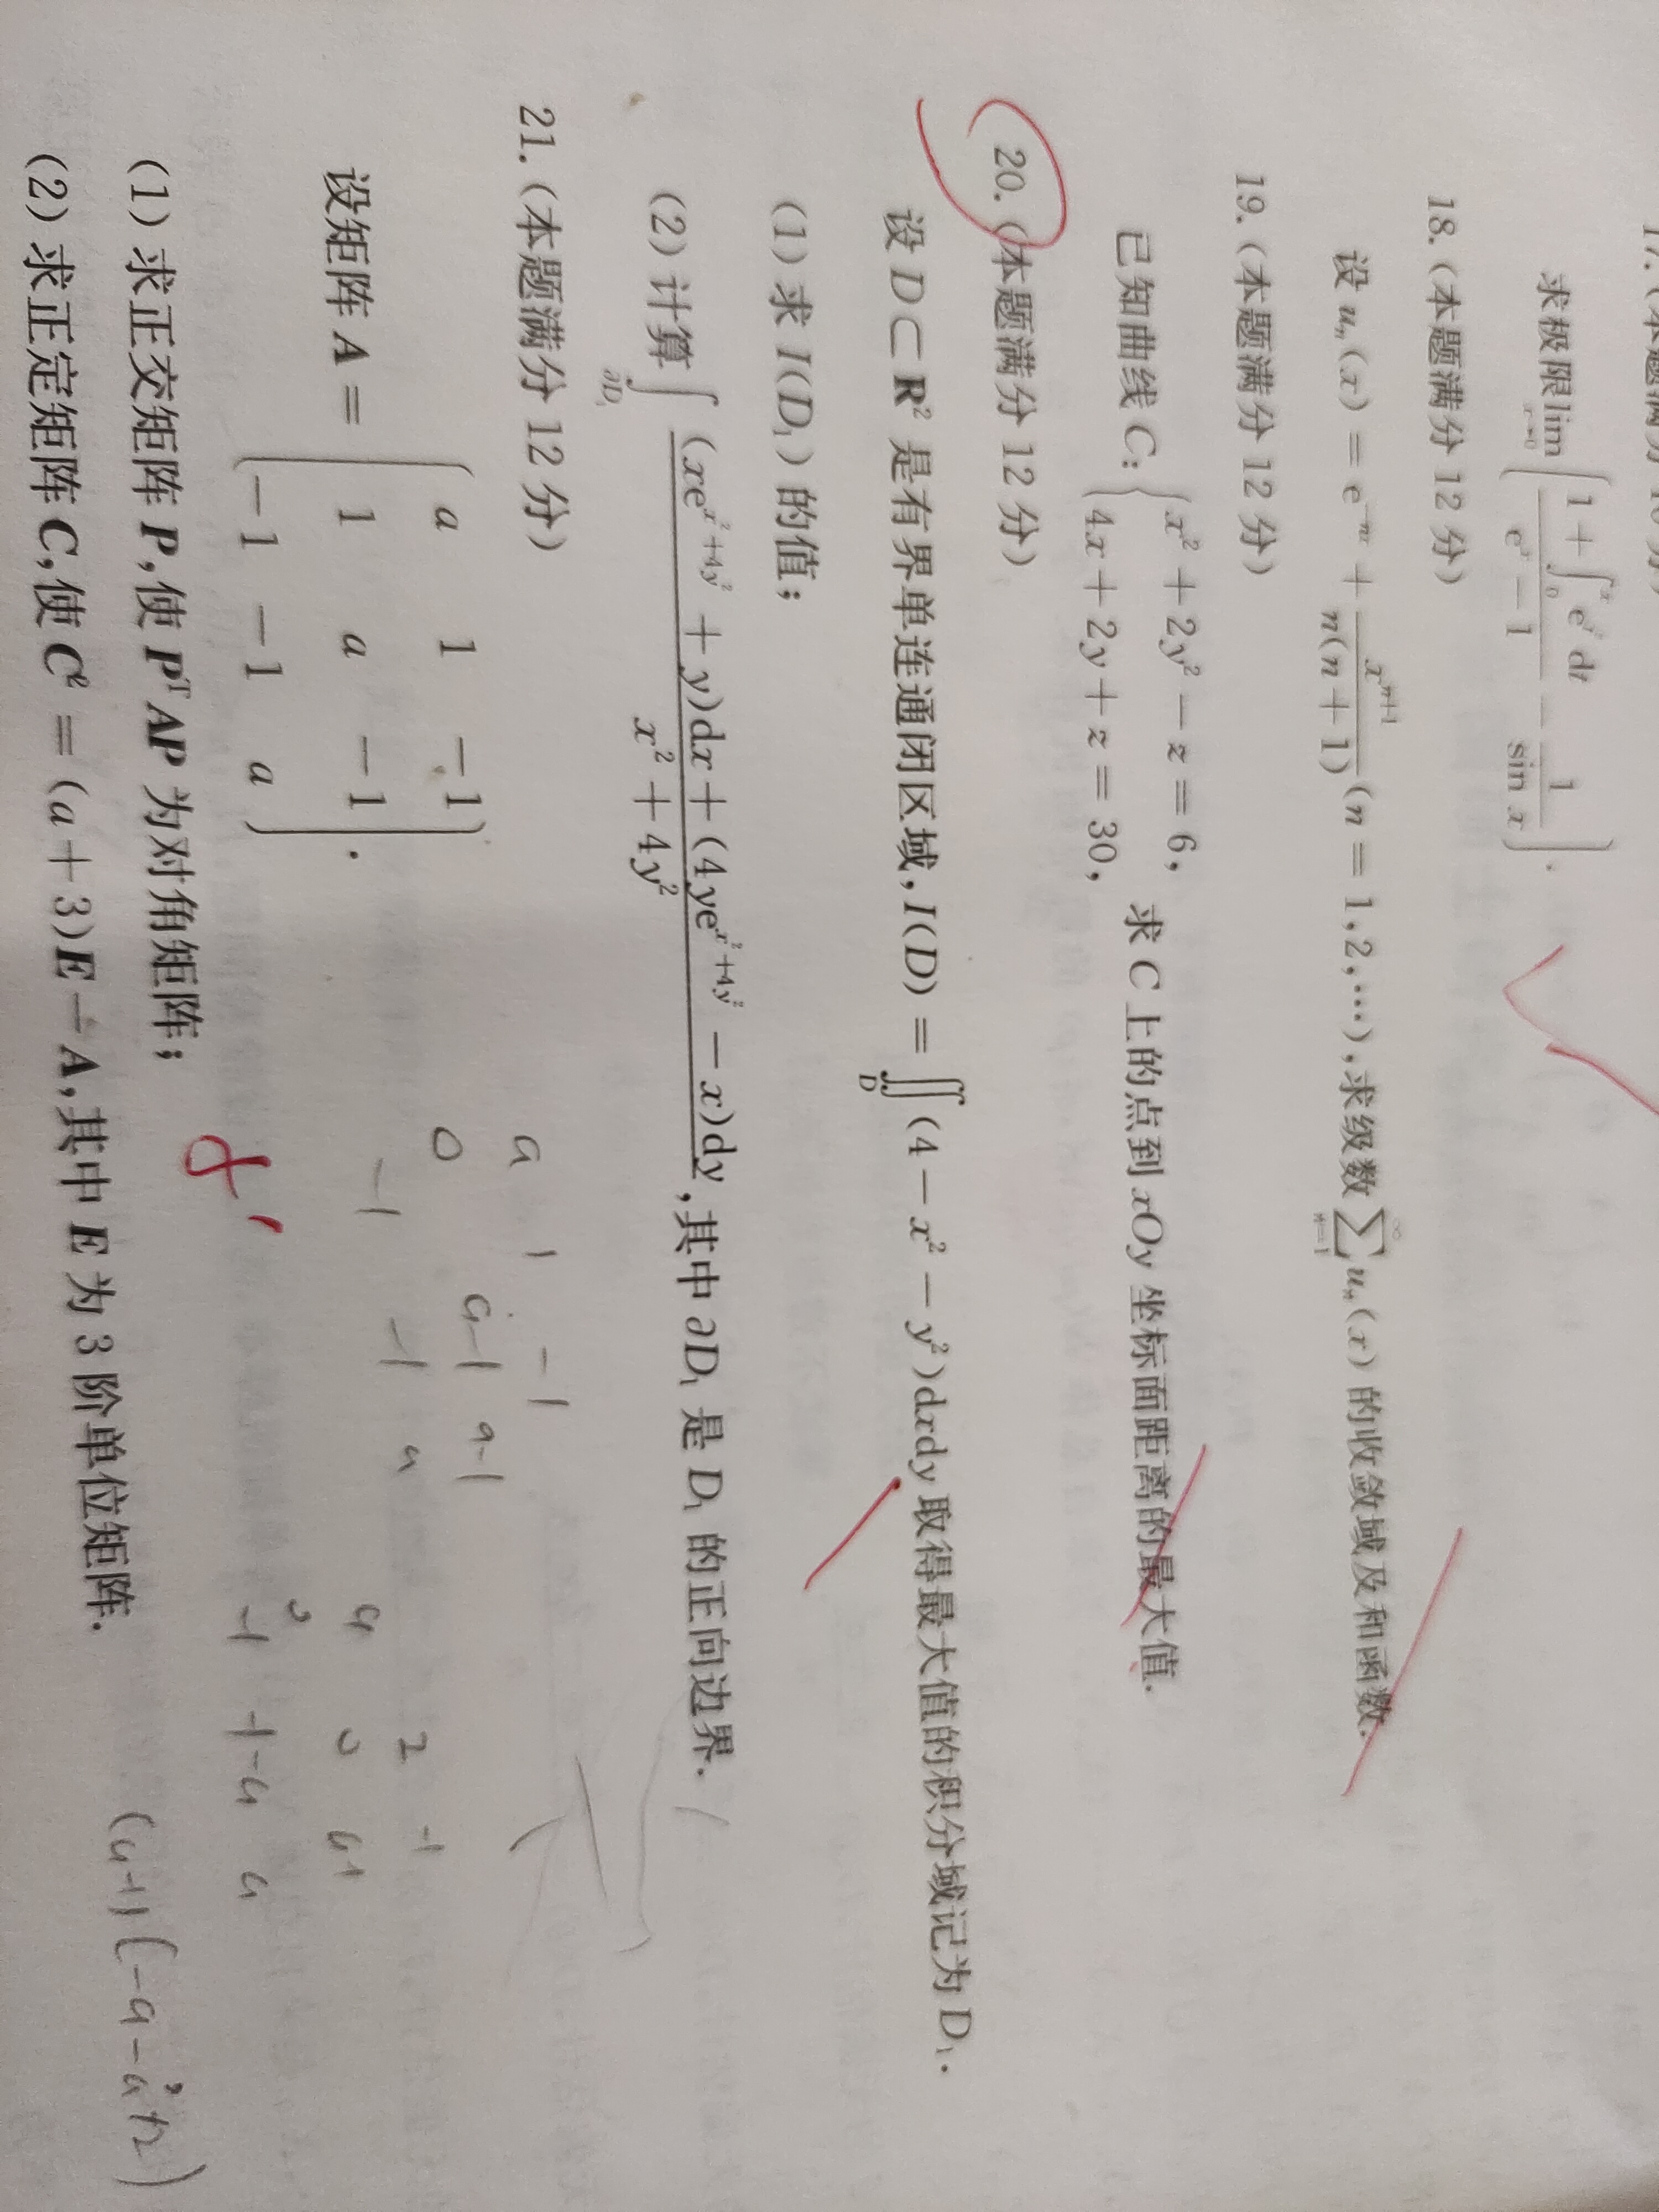 17.(本题满分 10 分)
求极限lim x→0 ( (1+∫₀ˣ e^{t²}dt)/(eˣ−1) − 1/sin x ).
18.(本题满分 12 分)
设 uₙ(x) = e^{−nx} + x^{n+1}/(n(n+1)) (n = 1,2,⋯),求级数 ∑_{n=1}^{∞} uₙ(x) 的收敛域及和函数.
19.(本题满分 12 分)
已知曲线 C: { x² + 2y² − z = 6, 4x + 2y + z = 30, 求 C 上的点到 xOy 坐标面距离的最大值.
20.(本题满分 12 分)
设 D ⊂ R² 是有界单连通闭区域,I(D) = ∬_D (4 − x² − y²)dxdy 取得最大值的积分域记为 D₁.
(1) 求 I(D₁) 的值;
(2) 计算 ∫_{∂D₁} ((xe^{x²+4y²} + y)dx + (4ye^{x²+4y²} − x)dy)/(x² + 4y²),其中 ∂D₁ 是 D₁ 的正向边界.
21.(本题满分 12 分)
设矩阵 A = ( a 1 −1
1 a −1
−1 −1 a ).
(1) 求正交矩阵 P,使 PᵀAP 为对角矩阵;
(2) 求正定矩阵 C,使 C² = (a + 3)E − A,其中 E 为 3 阶单位矩阵.
a 1 −1
0 a−1 a−1
−1 −1 a